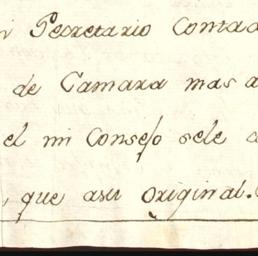 i Secretario Contad
de Camara mas a
el mi Consejo sele d
, que asu original.